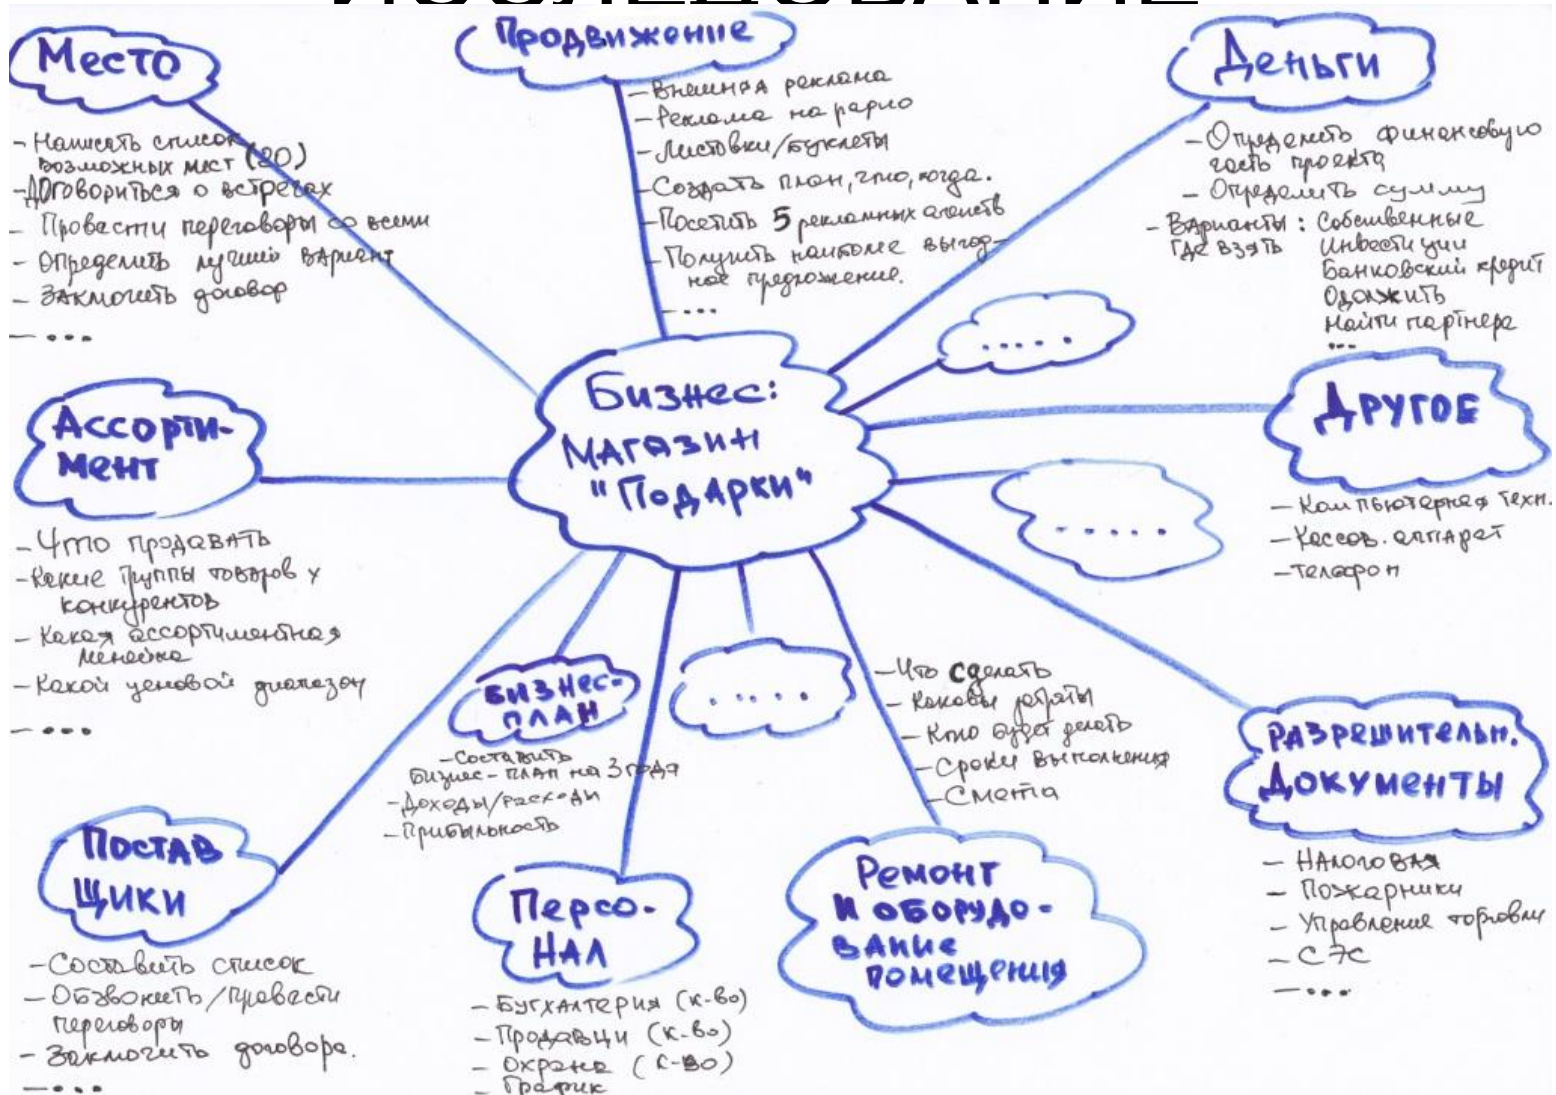 ИССЛЕДОВАНИЕ
Место
- Написать список
возможных мест (20)
- Договориться о встречах
- Провести переговоры со всеми
- Определить лучший вариант
- Заключить договор
- ...
Продвижение
- Внешняя реклама
- Реклама на радио
- Листовки/буклеты
- Создать план, что, когда.
- Посетить 5 рекламных агенств
- Получить наиболее выгод-
ное предложение.
- ...
Деньги
- Определить финансовую
часть проекта
- Определить сумму
- Варианты : Собственные
где взять инвестиции
Банковский кредит
Одолжить
Найти партнера
...
.....
Ассорти-
мент
- Что продавать
- Какие группы товаров у
конкурентов
- Какая ассортиментная
линейка
- Какой ценовой диапазон
- ...
Бизнес:
магазин
"Подарки"
Другое
- Компьютерная техн.
- Кассов. аппарат
- телефон
.....
Бизнес-
план
- Составить
бизнес-план на 3 года
- Доходы/расходы
- Прибыльность
.....
- Что сделать
- Каковы затраты
- Кто будет делать
- Сроки выполнения
- Смета
Ремонт
и оборудо-
вание
помещения
Разрешительн.
документы
- Налоговая
- Пожарники
- Управление торговли
- СЭС
- ...
Постав
щики
- Составить список
- Обзвонить/провести
переговоры
- Заключить договора.
- ...
Персо-
нал
- Бухгалтерия (к-во)
- Продавци (к-во)
- Охрана (к-во)
- График